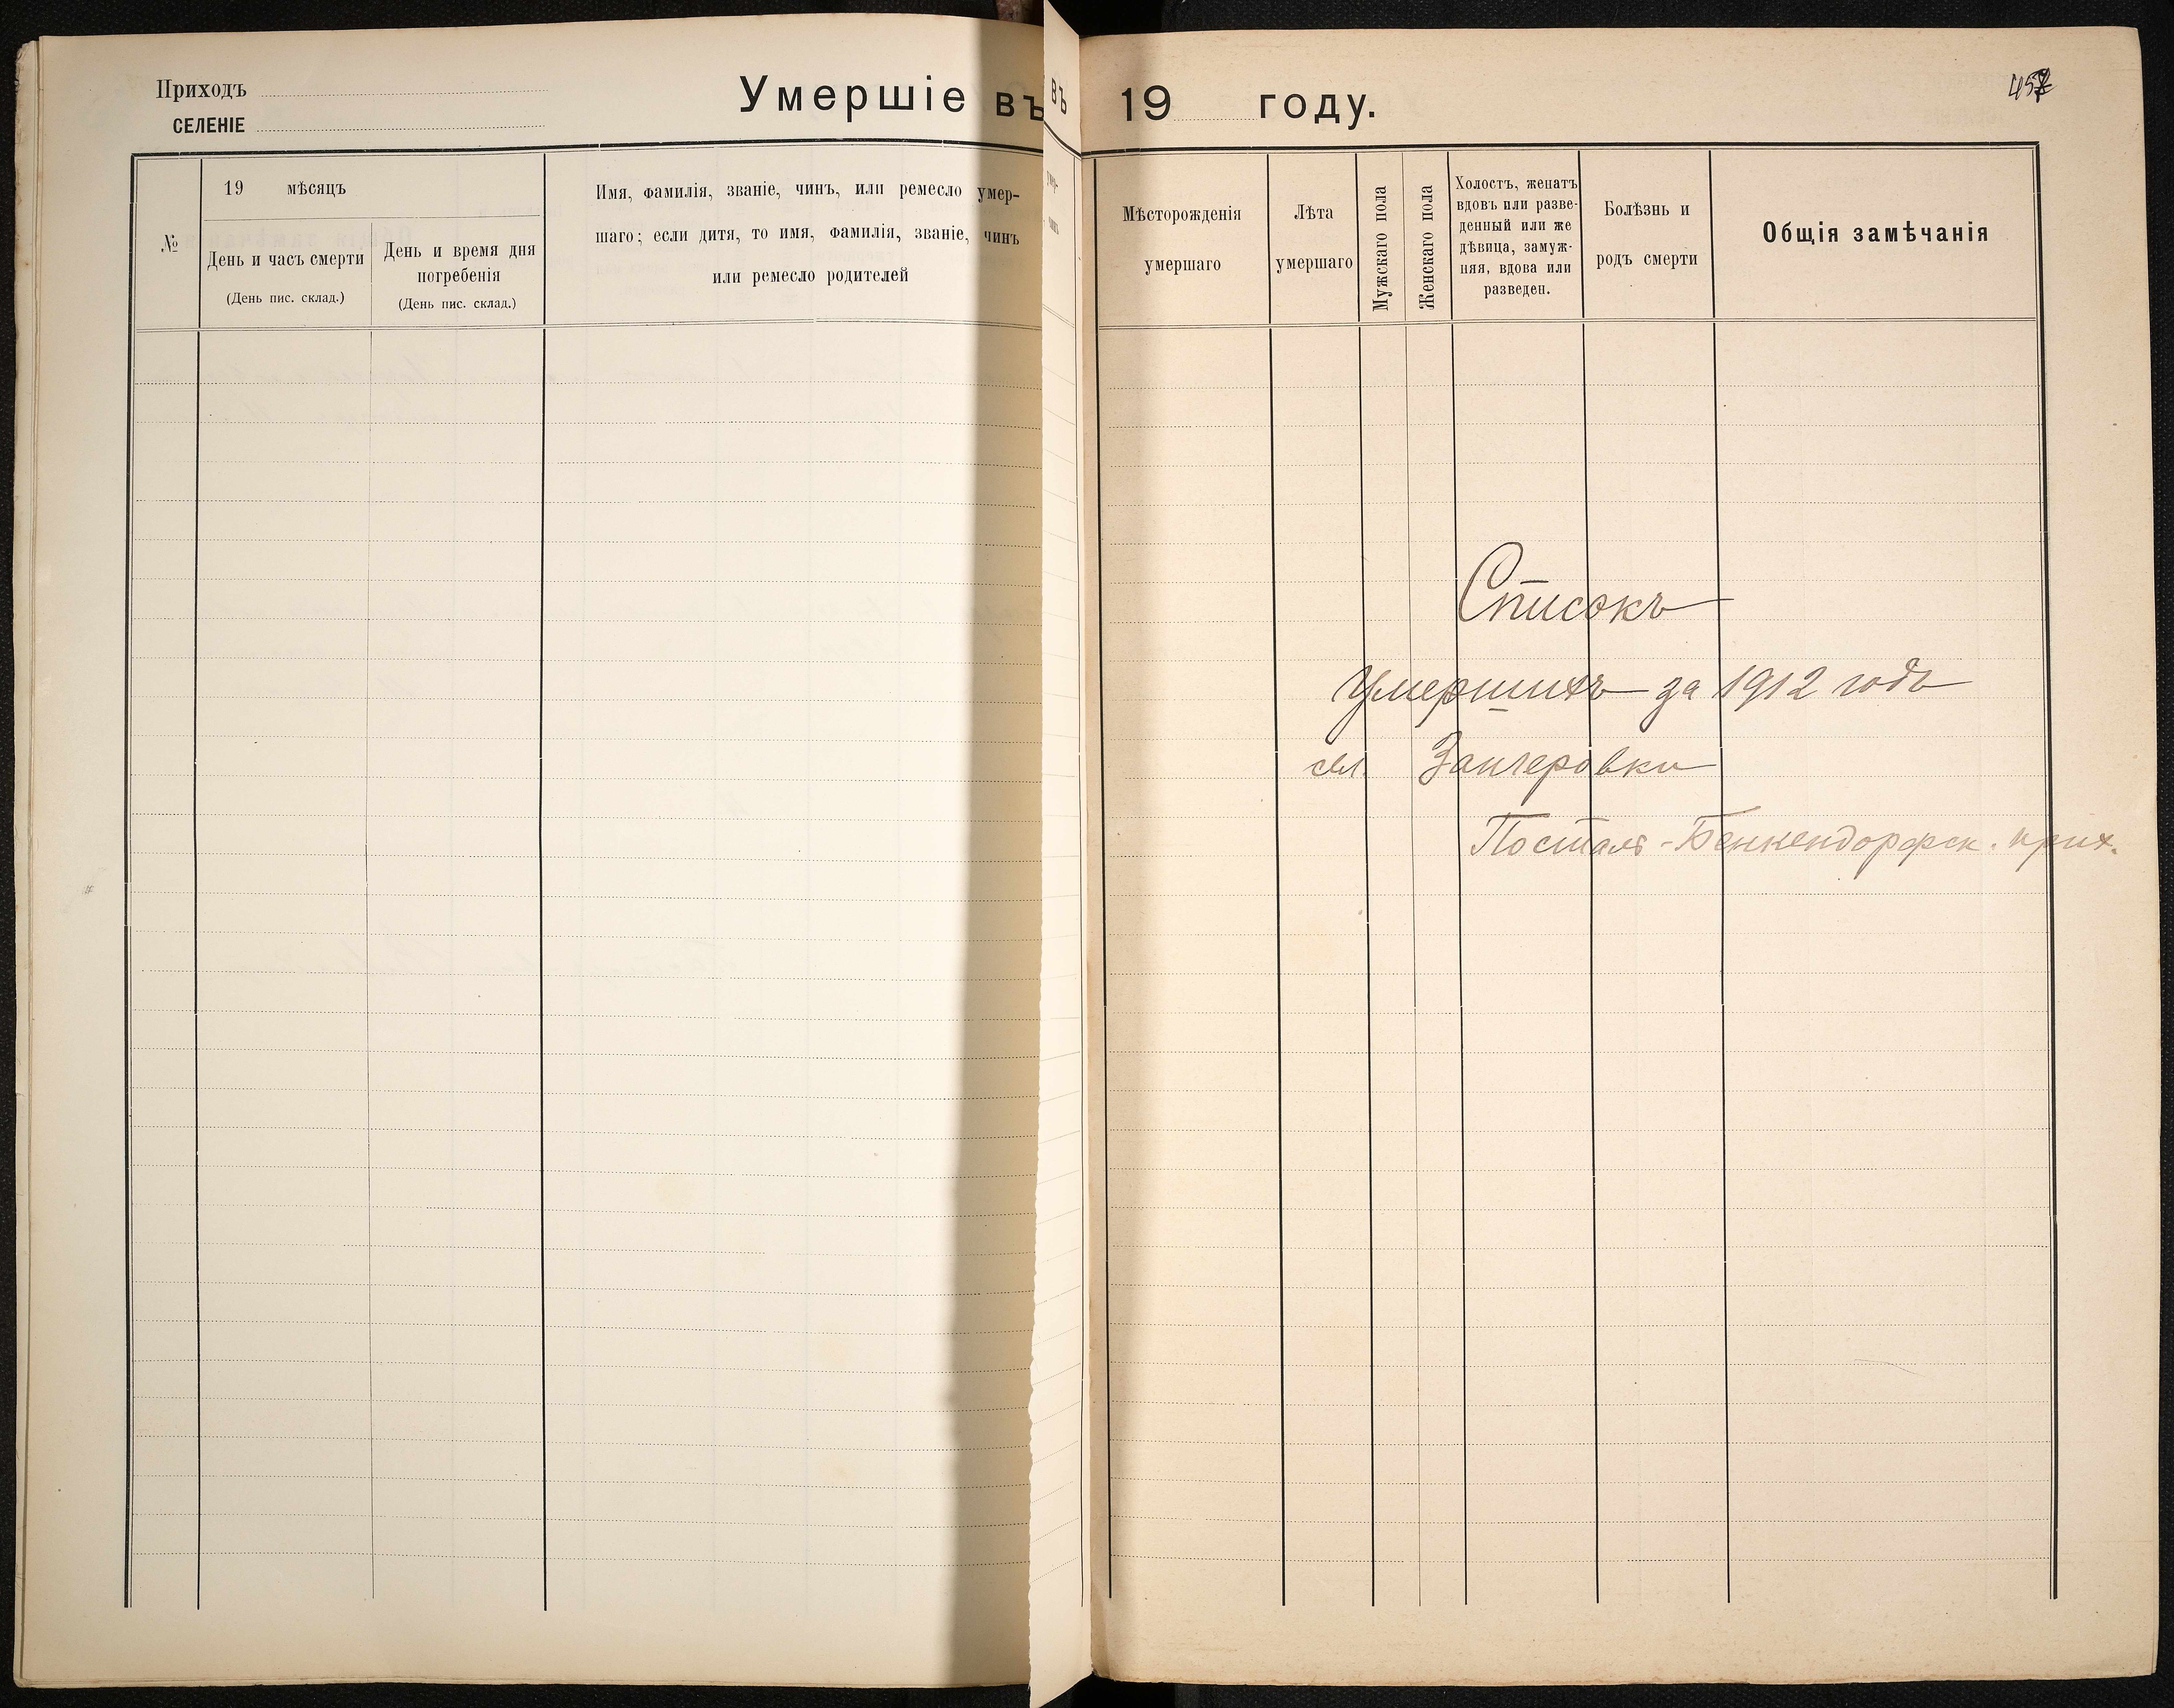 Приходъ
СЕЛЕНІЕ
Умершіе въ
№
19 мѣсяцъ
День и часъ смерти
(День пис. склад.)
День и время дня
погребенія
(День пис. склад.)
Имя, фамилія, званіе, чинъ, или ремесло умер-
шаго; если дитя, то имя, фамилія, званіе, чинъ
или ремесло родителей
въ
19 году.
Мѣсторожденія
умершаго
Лѣта
умершаго
Мужскаго пола
Женскаго пола
Холостъ, женатъ
вдовъ или разве-
денный или же
дѣвица, замуж-
няя, вдова или
разведен.
Болѣзнь и
родъ смерти
Общія замѣчанія
Списокъ
Умершихъ за 1912 годъ
Постталь-Бенкендорфск. прих.